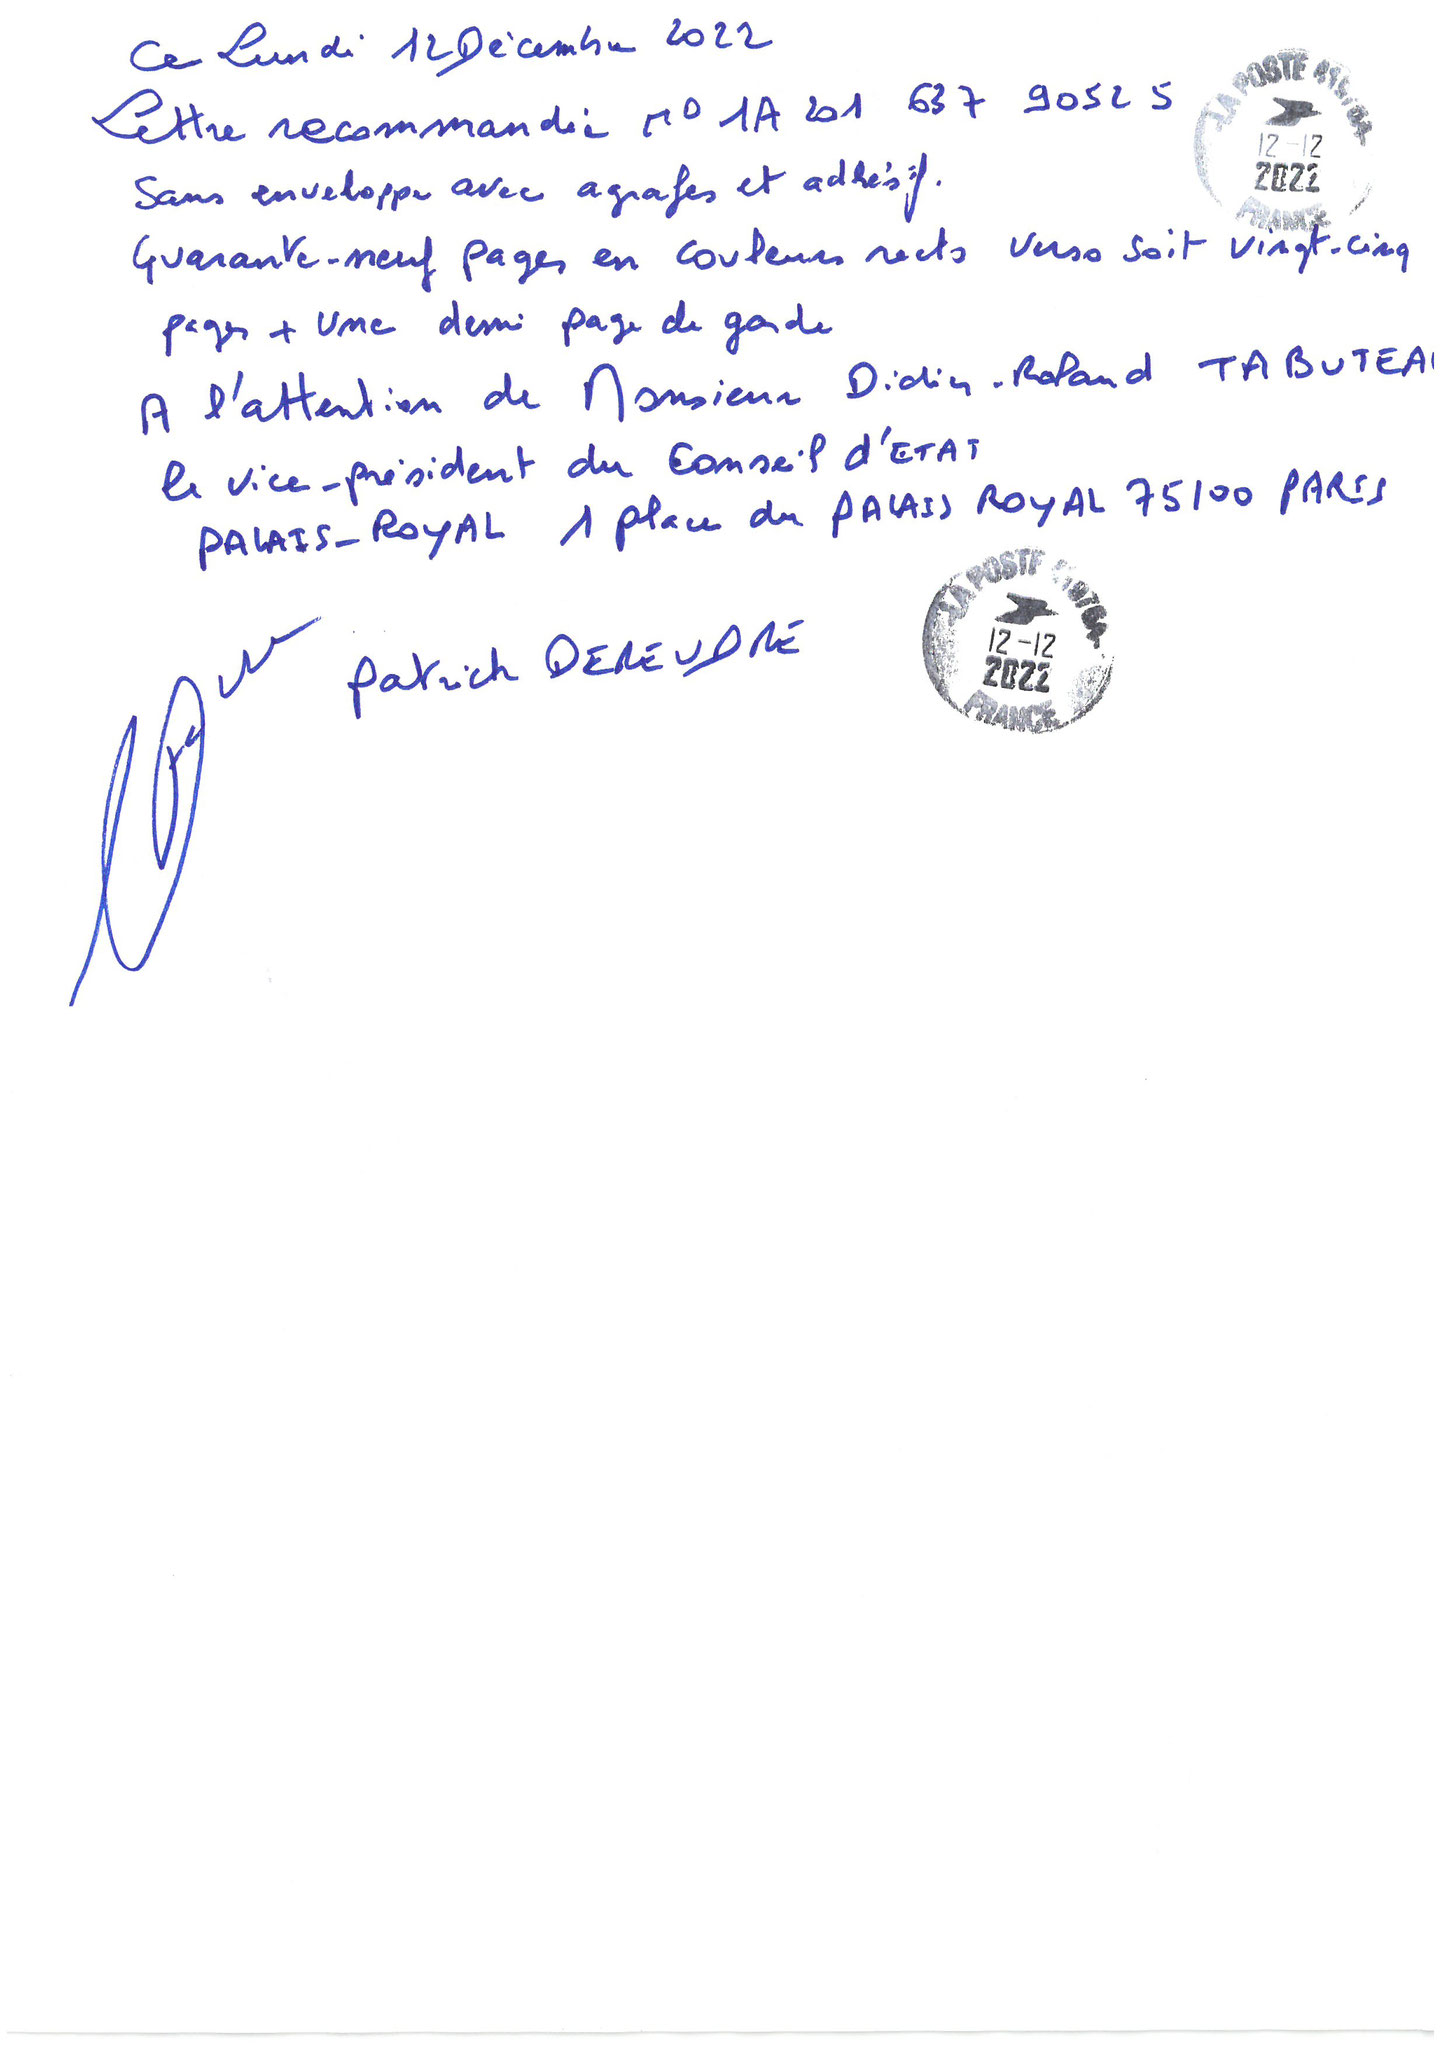 Ce Lundi 12 Décembre 2022
Lettre recommandée n° 1A 201 637 9052 5
Sans enveloppe avec agrafes et adhésif.
Quarante-neuf pages en couleurs recto verso soit vingt-cinq
pages + une demi page de garde
A l'attention de Monsieur Didier-Roland TABUTEAU
le vice-président du Conseil d'ETAT
PALAIS-ROYAL 1 place du PALAIS ROYAL 75100 PARIS
Patrick DEREUDRE
LA POSTE
12-12
2022
FRANCE
LA POSTE
12-12
2022
FRANCE